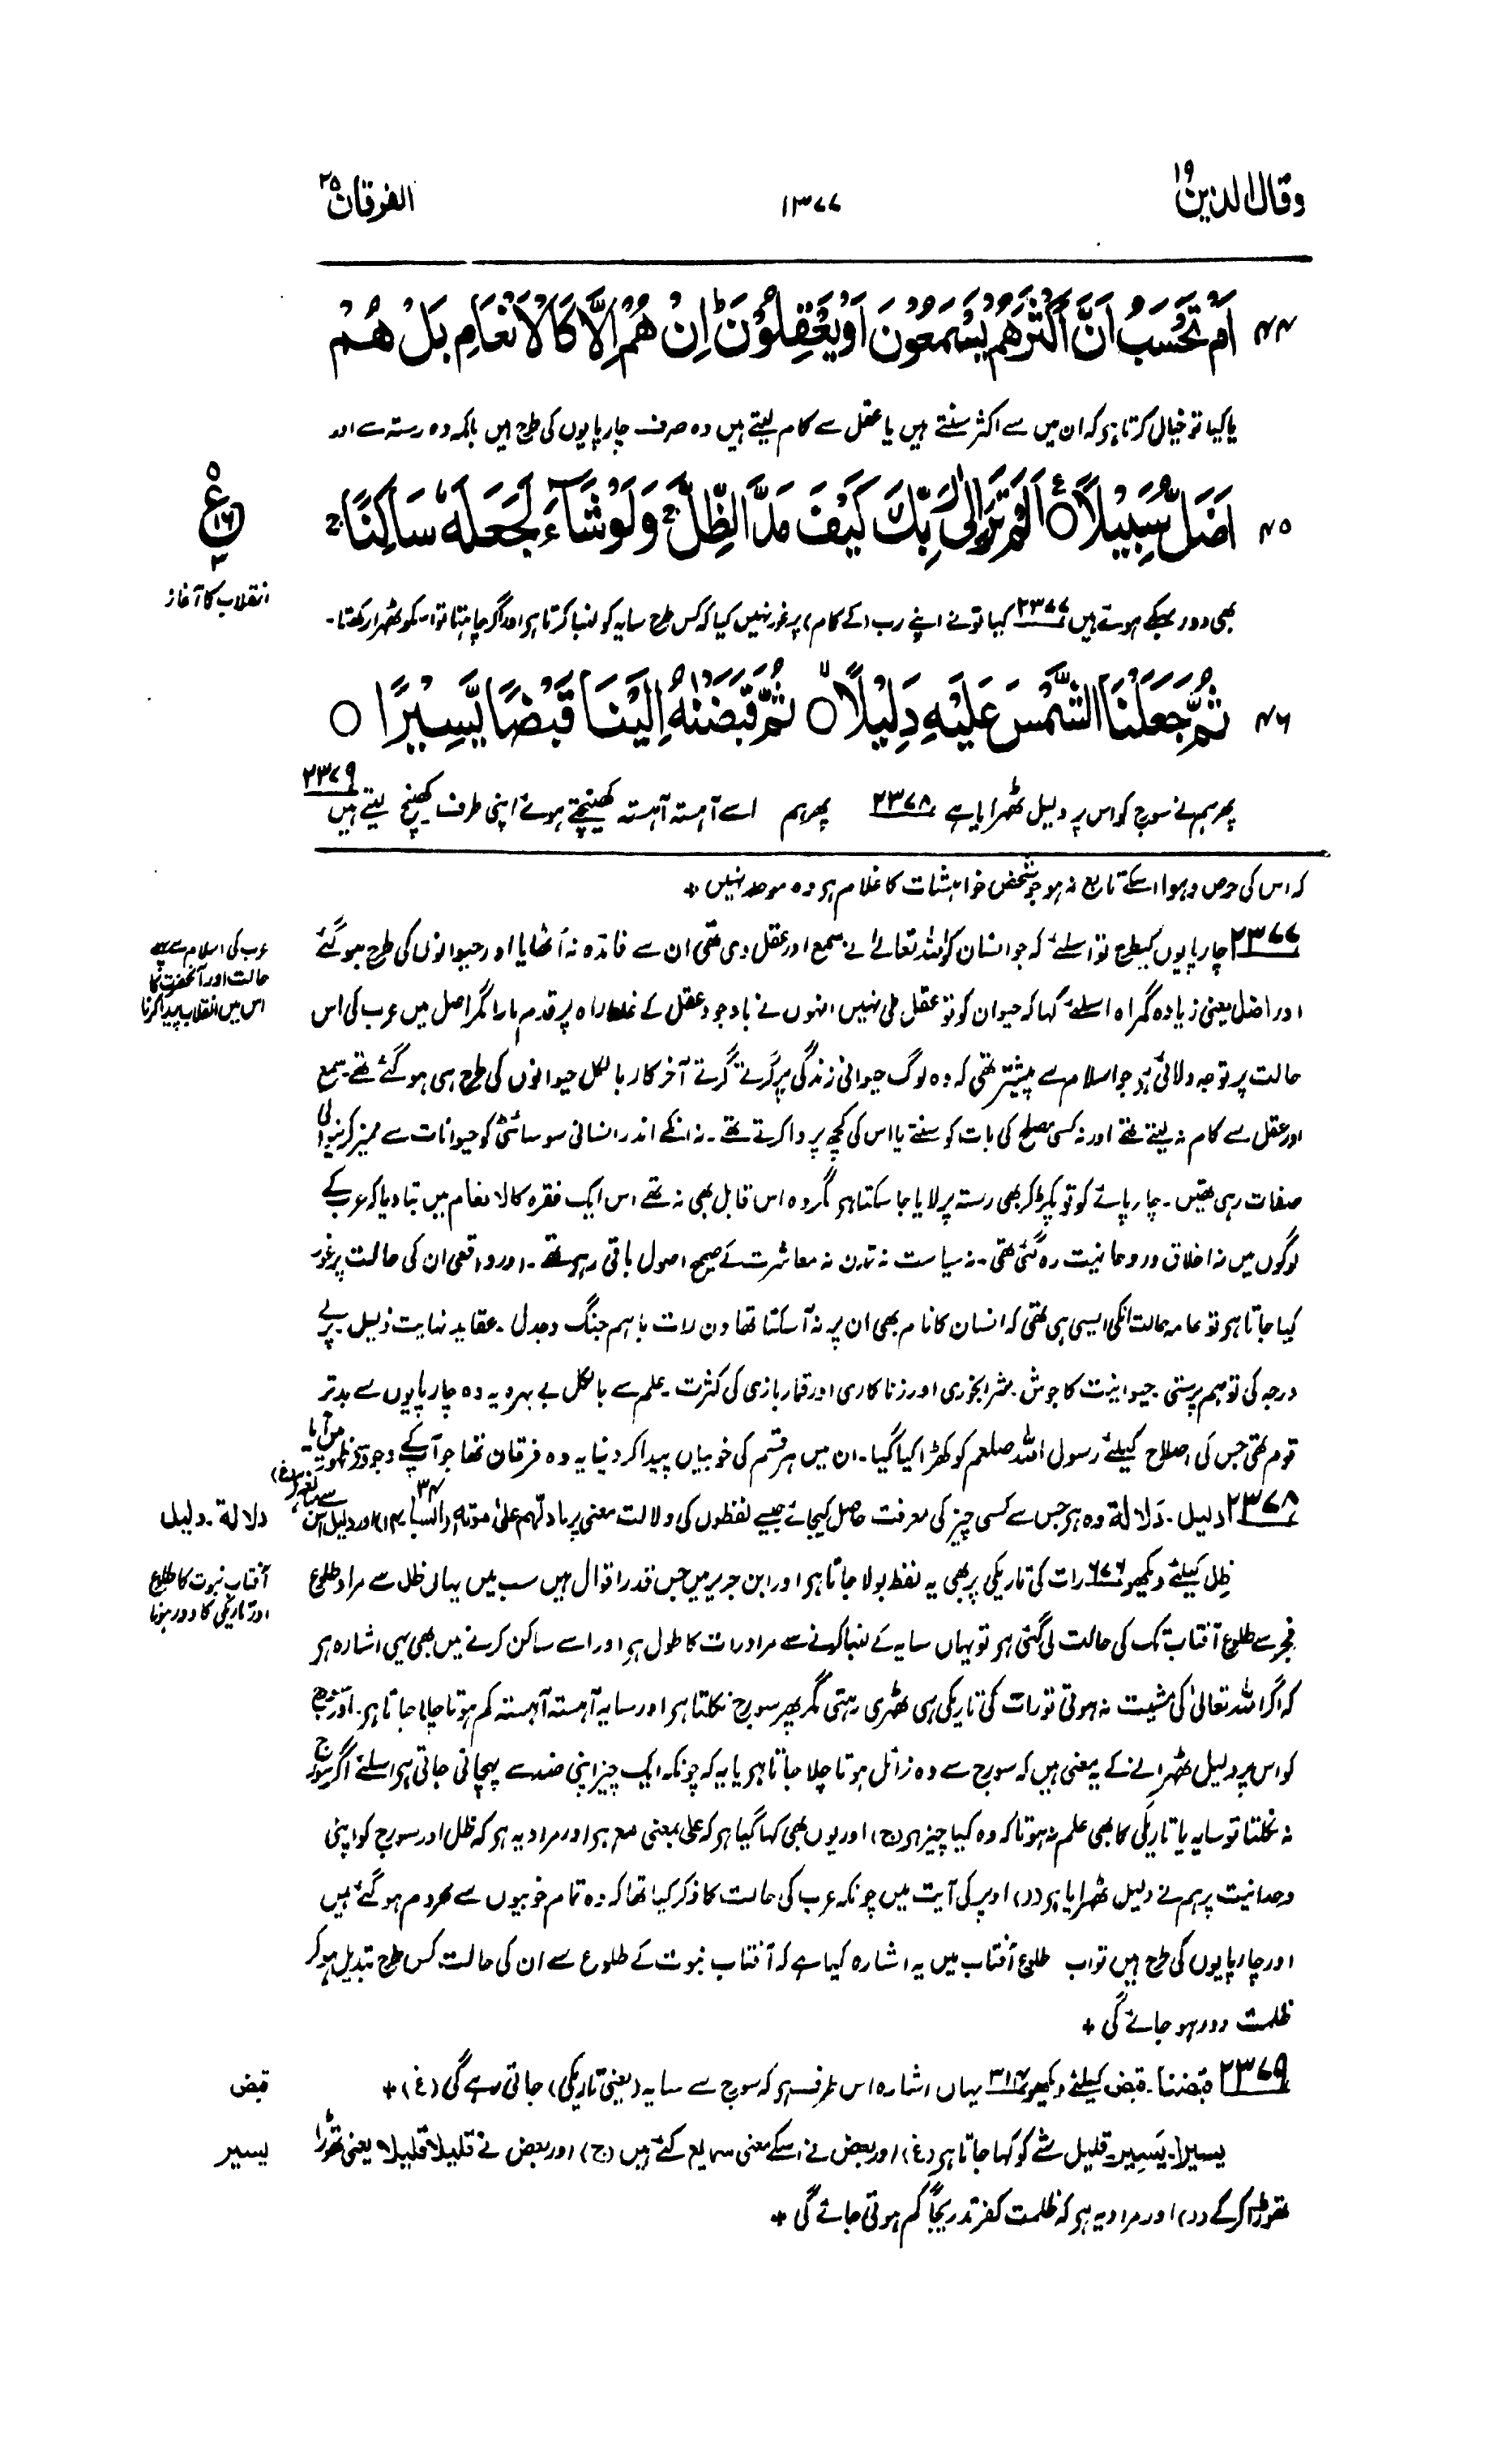 وقال الذین ۱۹
۱۳۷۷
الفرقان ۲۵
۴۴ اَمْ تَحْسَبُ اَنَّ اَكْثَرَهُمْ يَسْمَعُوْنَ اَوْ يَعْقِلُوْنَ ؕ اِنْ هُمْ اِلَّا كَالْاَنْعَامِ بَلْ هُمْ
یا کیا تو خیال کرتا ہو کہ ان میں سے اکثر سنتے ہیں یا عقل سے کام لیتے ہیں وہ صرف چارپایوں کی طرح ہیں بلکہ وہ رستہ سے اور
۴۵ اَضَلُّ سَبِيْلًا ۝ اَلَمْ تَرَ اِلٰى رَبِّكَ كَيْفَ مَدَّ الظِّلَّ ۚ وَلَوْ شَآءَ لَجَعَلَهٗ سَاكِنًا ۚ
ع ۵ ۱۶ ۳
انقلاب کا آغاز
بھی دور بھٹکے ہوئے ہیں ۲۳۷۷ کیا تو نے اپنے رب (کے کام) پر غور نہیں کیا کہ کس طرح سایہ کو لنبا کرتا ہو اور اگر چاہتا تو اسکو ٹھہرا رکھتا۔
۴۶ ثُمَّ جَعَلْنَا الشَّمْسَ عَلَيْهِ دَلِيْلًا ۝ ثُمَّ قَبَضْنٰهُ اِلَيْنَا قَبْضًا يَّسِيْرًا ۝
پھر ہم نے سورج کو اس پر دلیل ٹھہرایا ہے ۲۳۷۸ پھر ہم اسے آہستہ آہستہ کھینچتے ہوئے اپنی طرف کھینچ لیتے ہیں ۲۳۷۹
کہ اس کی حرص و ہوا اسکے تابع نہ ہو جو شخص خواہشات کا غلام ہو وہ موحد نہیں +
۲۳۷۷ چارپایوں کیطرح تو اسلئے کہ جو انسان کو اللہ تعالےٰ نے سمع اور عقل دی تھی ان سے فائدہ نہ اُٹھایا اور حیوانوں کی طرح ہو گئے
عرب کی اسلام سے پہلے
حالت اور آنحضرت کا
اس میں انقلاب پیدا کرنا
اور اضل یعنی زیادہ گمراہ اسلئے کہا کہ حیوان کو تو عقل ملی نہیں انہوں نے باوجود عقل کے غلط راہ پر قدم مارا مگر اصل میں عرب کی اس
حالت پر توجہ دلائی ہو جو اسلام سے پیشتر تھی کہ وہ لوگ حیوانی زندگی پر گرتے گرتے آخر کار بالکل حیوانوں کی طرح ہی ہو گئے تھے۔ سمع
اور عقل سے کام نہ لیتے تھے اور نہ کسی مصلح کی بات کو سنتے یا اس کی کچھ پروا کرتے تھے۔ نہ انکے اندر انسانی سوسائٹی کو حیوانات سے ممیز کرنیوالی
صفات رہی تھیں۔ چارپائے کو تو پکڑ کر بھی رستہ پر لایا جا سکتا ہو مگر وہ اس قابل بھی نہ تھے اس ایک فقرہ کالانعام میں بتا دیا کہ عرب کے
لوگوں میں نہ اخلاق و روحانیت رہ گئی تھی۔ نہ سیاست نہ تمدن نہ معاشرت کے صحیح اصول باقی رہے تھے۔ اور واقعی ان کی حالت پر غور
کیا جاتا ہو تو عامہ حالت انکی ایسی ہی تھی کہ انسان کا نام بھی ان پر نہ آ سکتا تھا دن رات باہم جنگ و جدل۔ عقاید نہایت ذلیل۔ پرلے
درجہ کی توہم پرستی۔ حیوانیت کا جوش۔ شرابخوری اور زناکاری اور قماربازی کی کثرت۔ علم سے بالکل بے بہرہ یہ وہ چارپایوں سے بدتر
قوم تھی جس کی اصلاح کیلئے رسول اللہ صلعم کو کھڑا کیا گیا۔ ان میں ہر قسم کی خوبیاں پیدا کر دینا یہ وہ فرقان تھا جو آپکے وجود سے ظہور میں آیا
۲۳۷۸ دلیل۔ دَلالة وہ ہو جس سے کسی چیز کی معرفت حاصل کیجائے جیسے لفظوں کی دلالت معنی پر مادلّهم علیٰ موته (السبا ۳۴: ۱۴) اور دلیل اس سے (غ)
دلالة۔ دلیل
ظِل کیلئے دیکھو ۶۷۶ رات کی تاریکی پر بھی یہ لفظ بولا جاتا ہو اور ابن جریر میں جس قدر اقوال ہیں سب میں یہاں ظل سے مراد طلوع
آفتاب نبوت کا طلوع
اور تاریکی کا دور ہونا
فجر سے طلوع آفتاب تک کی حالت لی گئی ہو تو یہاں سایہ کے لنبا کرنے سے مراد رات کا طول ہو اور اسے ساکن کرنے میں بھی یہی اشارہ ہو
کہ اگر اللہ تعالیٰ کی مشیت نہ ہوتی تو رات کی تاریکی ہی ٹھہری رہتی مگر پھر سورج نکلتا ہو اور سایہ آہستہ آہستہ کم ہوتا چلا جاتا ہو۔ اور سورج
کو اس پر دلیل ٹھہرانے کے یہ معنی ہیں کہ سورج سے وہ زائل ہوتا چلا جاتا ہو یا یہ کہ چونکہ ایک چیز اپنی ضد سے پہچانی جاتی ہو اسلئے اگر سورج
نہ نکلتا تو سایہ یا تاریکی کا بھی علم نہ ہوتا کہ وہ کیا چیز ہو (ج) اور یوں بھی کہا گیا ہو کہ علی بمعنی مع ہو اور مراد یہ ہو کہ ظل اور سورج کو اپنی
وحدانیت پر ہم نے دلیل ٹھہرایا ہو (ر) اوپر کی آیت میں چونکہ عرب کی حالت کا ذکر کیا تھا کہ وہ تمام خوبیوں سے محروم ہو گئے ہیں
اور چارپایوں کی طرح ہیں تو اب طلوع آفتاب میں یہ اشارہ کیا ہے کہ آفتاب نبوت کے طلوع سے ان کی حالت کس طرح تبدیل ہو کر
ظلمت دور ہو جائے گی +
۲۳۷۹ قبضنا۔ قبض کیلئے دیکھو ۳۱۴ یہاں اشارہ اس طرف ہو کہ سورج سے سایہ (یعنی تاریکی) جاتی رہے گی (غ) +
قبض
یسیرا۔ یَسِیر۔ قلیل شے کو کہا جاتا ہو (غ) اور بعض نے اسکے معنی سریع کئے ہیں (ج) اور بعض نے قلیلا قلیلا یعنی تھوڑا
یسیر
تھوڑا کر کے (ر) اور مراد یہ ہو کہ ظلمت کفر تدریجاً کم ہوتی جائے گی +